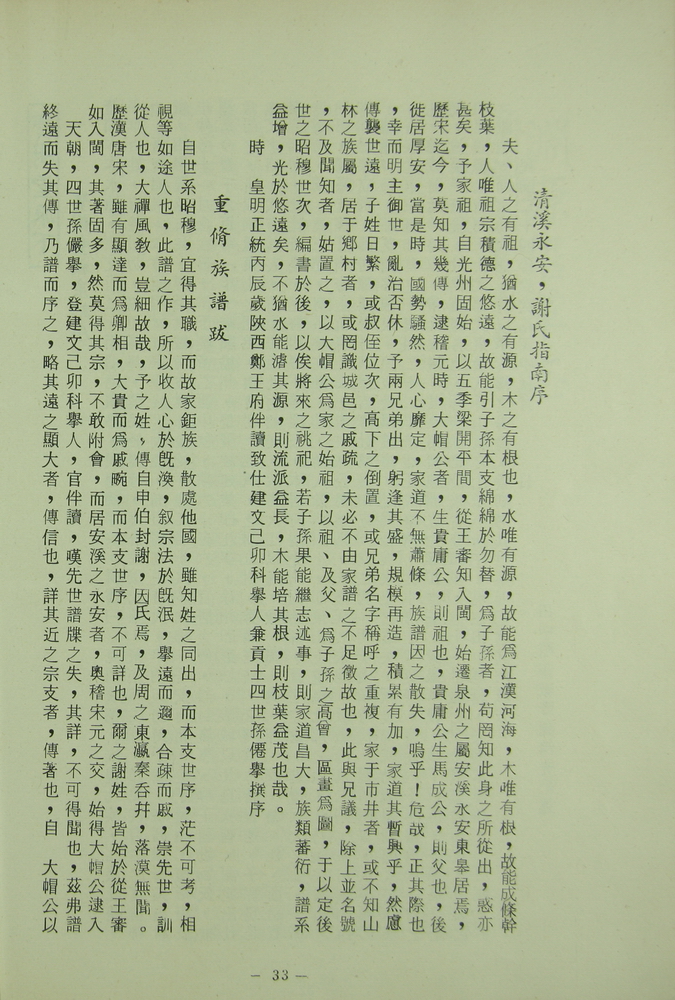 清溪永安，謝氏指南序
夫、人之有祖，猶水之有源，木之有根也，水唯有源，故能爲江漢河海，木唯有根，故能成條幹
枝葉，人唯祖宗積德之悠遠，故能引子孫本支綿綿於勿替，爲子孫者，苟罔知此身之所從出，惑亦
甚矣，予家祖，自光州固始，以五季梁開平間，從王審知入閩，始遷泉州之屬安溪永安東皋居焉，
歷宋迄今，莫知其幾傳，逮稽元時，大帽公者，生貴庸公，則祖也，貴庸公生馬成公，則父也，後
徙居厚安，當是時，國勢騷然，人心靡定，家道不無蕭條，族譜因之散失，嗚乎！危哉，正其際也
，幸而明主御世，亂治否休，予兩兄弟出，躬逢其盛，規模再造，積累有加，家道其暫興乎，然慮
傳襲世遠，子姓日繁，或叔侄位次，高下之倒置，或兄弟名字稱呼之重複，家于市井者，或不知山
林之族屬，居于鄉村者，或罔識城邑之戚疏，未必不由家譜之不足徵故也，此與兄議，除上並名號
，不及聞知者，姑置之，以大帽公爲家之始祖，以祖、及父、爲子孫之高曾，區畫爲圖，于以定後
世之昭穆世次，編書於後，以俟將來之祧祀，若子孫果能繼志述事，則家道昌大，族類蕃衍，譜系
益增，光於悠遠矣，不猶水能濬其源，則流派益長，木能培其根，則枝葉益茂也哉。
時　皇明正統丙辰歲陜西鄭王府伴讀致仕建文己卯科舉人兼貢士四世孫僊舉撰序
重脩族譜跋
自世系昭穆，宜得其職，而故家鉅族，散處他國，雖知姓之同出，而本支世序，茫不可考，相
視等如途人也，此譜之作，所以收人心於旣渙，叙宗法於旣泯，舉遠而邇，合疎而戚，崇先世，訓
從人也，大禪風敎，豈細故哉，予之姓，傳自申伯封謝，因氏焉，及周之東瀛秦吞幷，落漠無聞。
歷漢唐宋，雖有顯達而爲卿相，大貴而爲戚畹，而本支世序，不可詳也，爾之謝姓，皆始於從王審
如入閩，其著固多，然莫得其宗，不敢附會，而居安溪之永安者，奧稽宋元之交，始得大帽公逮入
天朝，四世孫儼舉，登建文己卯科舉人，官伴讀，嘆先世譜牒之失，其詳，不可得聞也，茲弗譜
終遠而失其傳，乃譜而序之，略其遠之顯大者，傳信也，詳其近之宗支者，傳著也，自　大帽公以
— 33 —